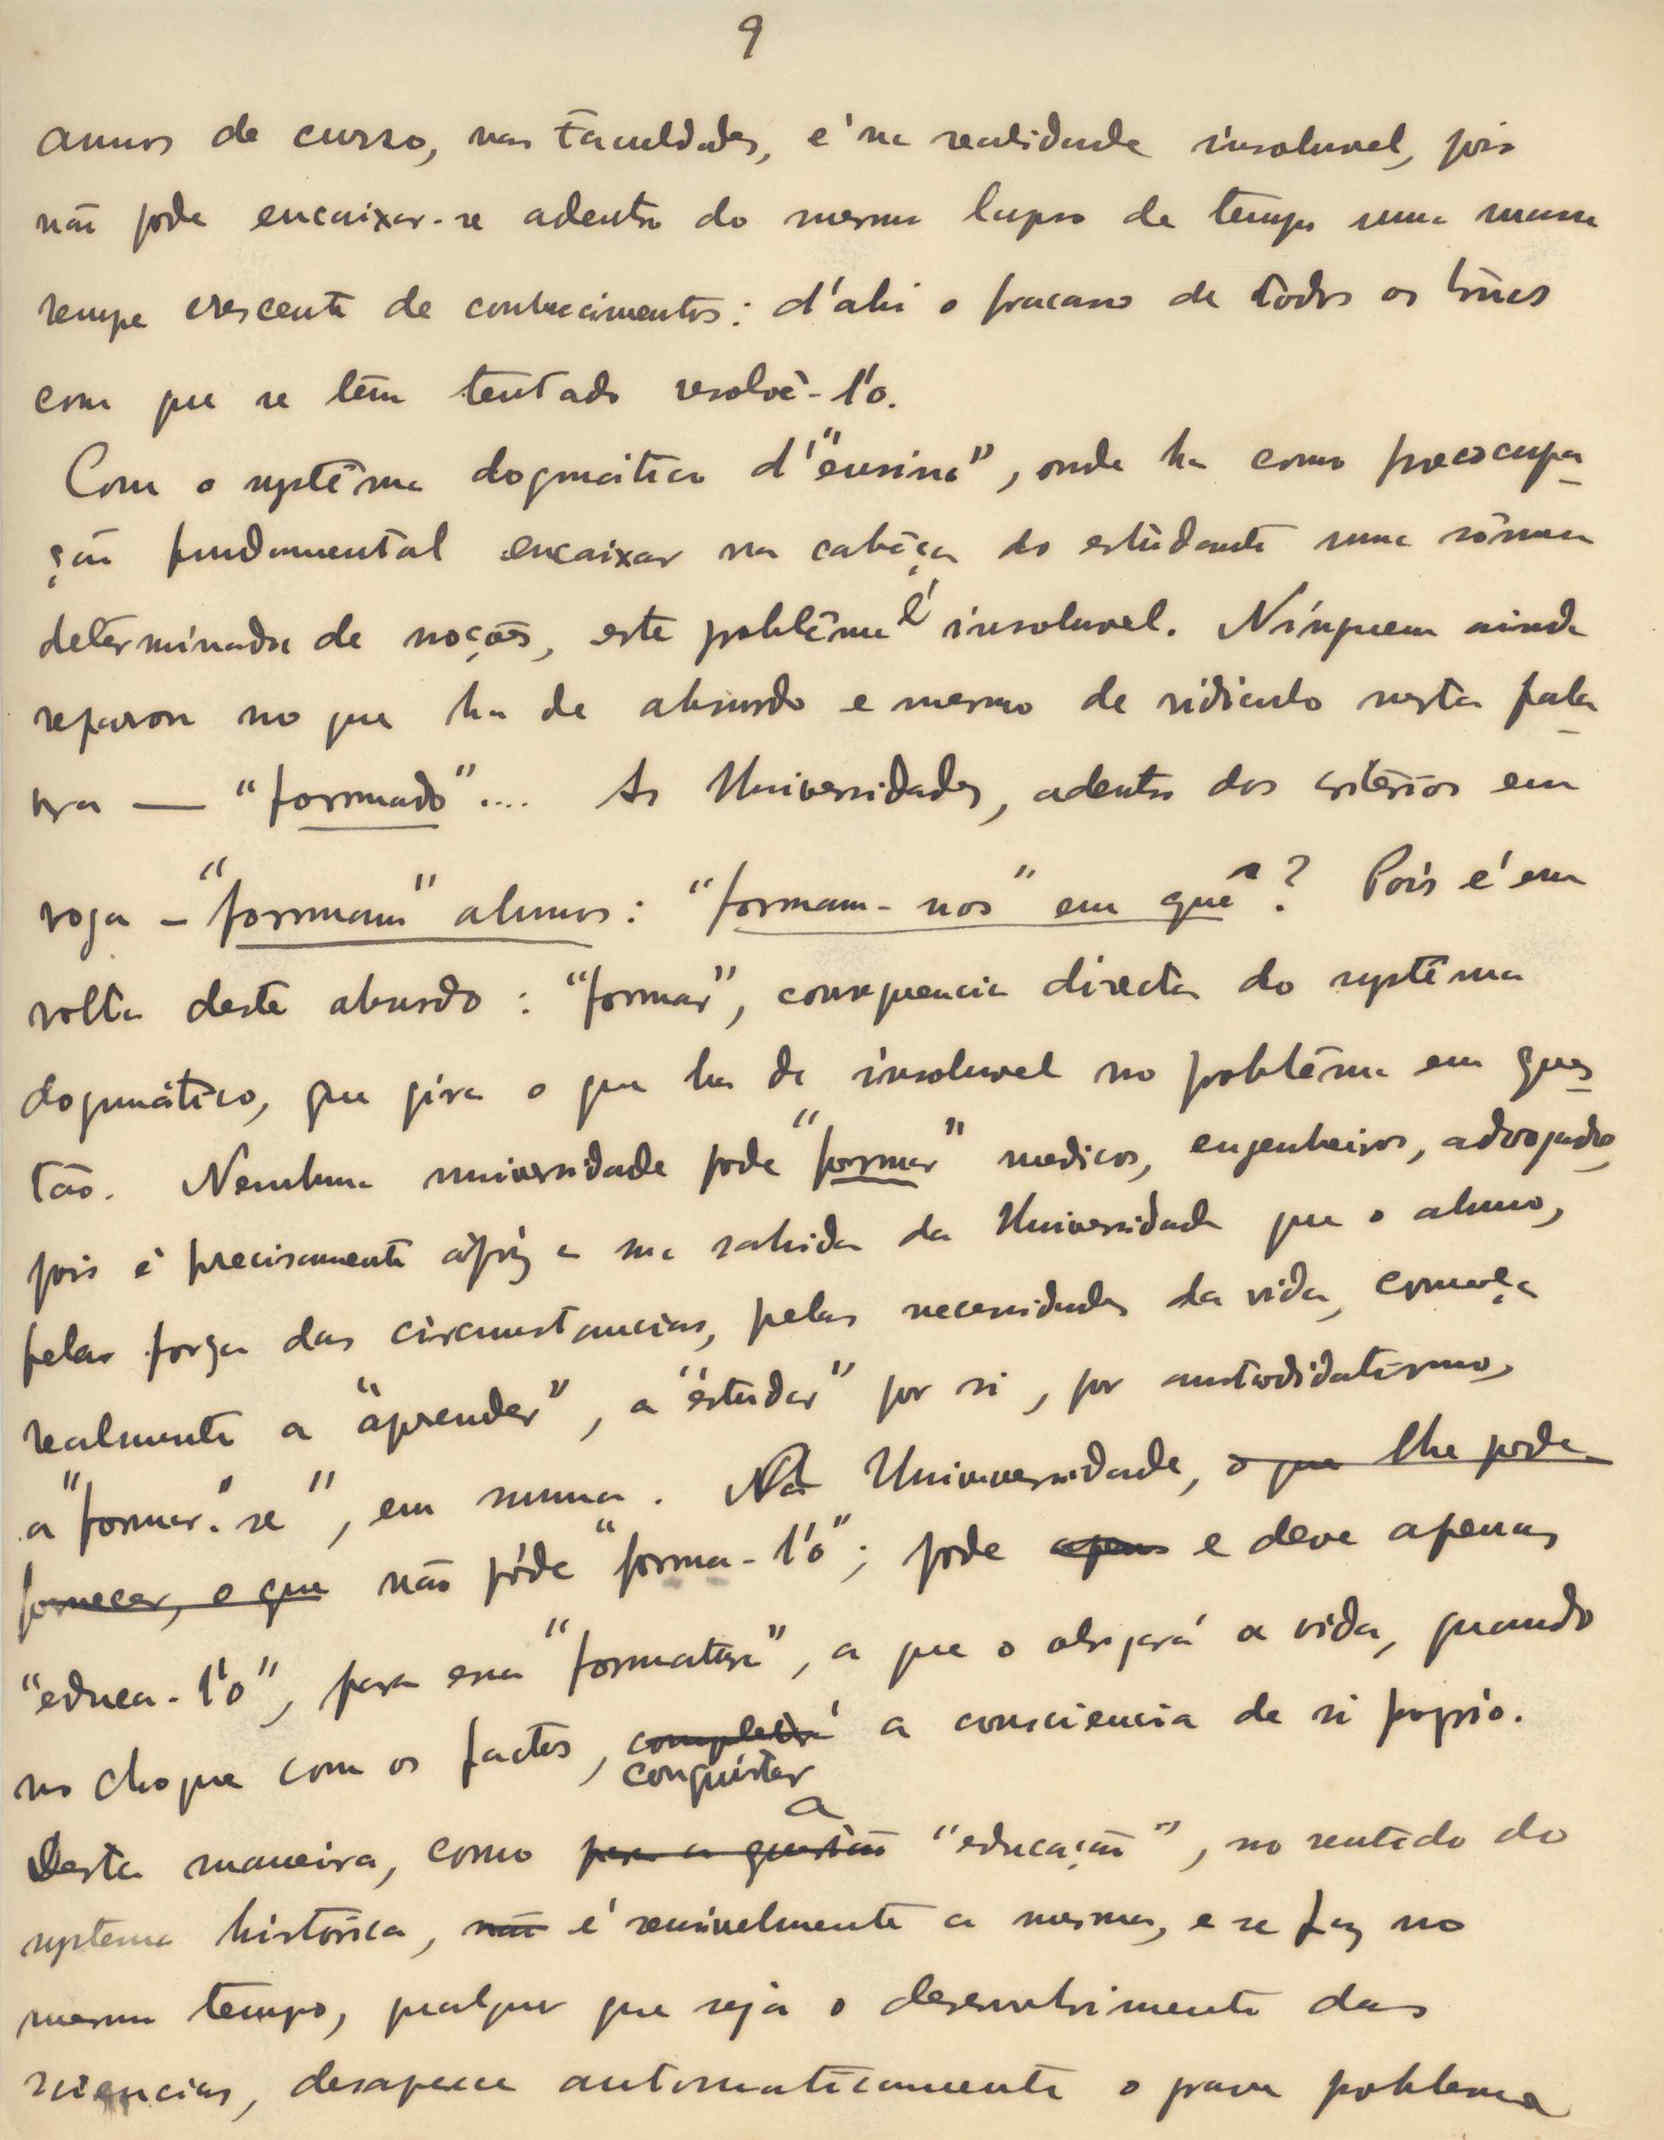 9
annos de curso, nas Faculdades, é na realidade insoluvel, pois
não pode encaixar-se adentro do mesmo lapso de tempo uma massa
sempre crescente de conhecimentos: d'ahi o fracasso de todos os
com que se têm tentado resolvê-l'o.
Com o systêma dogmático d'"ensino", onde ha como preoccupa-
ção fundamental encaixar na cabêça do estudante uma sômma
determinada de noções, este problêma é insoluvel. Ninguem ainda
reparou no que ha de absurdo e mesmo de ridiculo nesta pala-
vra — "formado".... As Universidades, adentro dos critérios em
voga – "formam" alumnos: "formam-nos" em quê? Pois é em
volta deste absurdo: "formar", consequencia directa do systêma
dogmático, que gira o que ha de insoluvel no problêma em ques-
tão. Nenhuma universidade pode "formar" medicos, engenheiros, advogados,
pois é precisamente após a sua sahida da Universidade que o alumno,
pelas força das circumstancias, pelas necessidades da vida, comeêça
realmente a "aprender", a "estudar" por si, por autodidatismo,
a "formar-se", em summa. Na Universidade, o que lhe pode
fornecer, o que não póde "forma-l'o"; pode apenas e deve apenas
"educa-l'o", para essa "formatura", a que o obrigará a vida, quando
no choque com os factos, completar a consciencia de si proprio.
conquistar
a
Desta maneira, como para a questão "educação", no sentido do
systema histórica, não é sensivelmente a mesma, e se faz no
mesmo tempo, qualquer que seja o desenvolvimento das
sciencias, desaparece automaticamente o grave problema